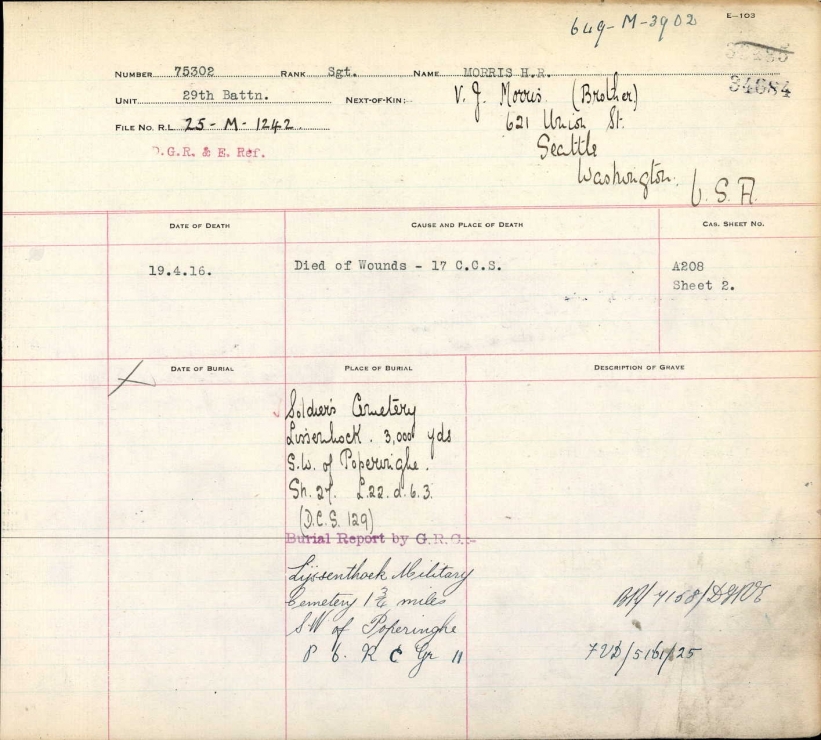 649-M-3902
E-103
34684
NUMBER 75302 RANK Sgt. NAME MORRIS H.R.
UNIT 29th Battn. NEXT-OF-KIN: V. J. Morris (Brother)
621 Union St.
FILE NO. R.L. 25-M-1242.
Seattle
D.G.R. & E. Ref.
Washington.
U.S.A.
DATE OF DEATH CAUSE AND PLACE OF DEATH CAS. SHEET NO.
19.4.16. Died of Wounds - 17 C.C.S. A208
Sheet 2.
DATE OF BURIAL PLACE OF BURIAL DESCRIPTION OF GRAVE
Soldier's Cemetery
Lissenhock. 3,000 yds
S.W. of Poperinghe.
Sh. 27. L.22.d.6.3.
(D.C.S. 129)
Burial Report by G.R.C.:-
Lijssenthoek Military
Cemetery 1 3/4 miles
SW of Poperinghe
P 6. R C Gr 11
7VD/5161/25